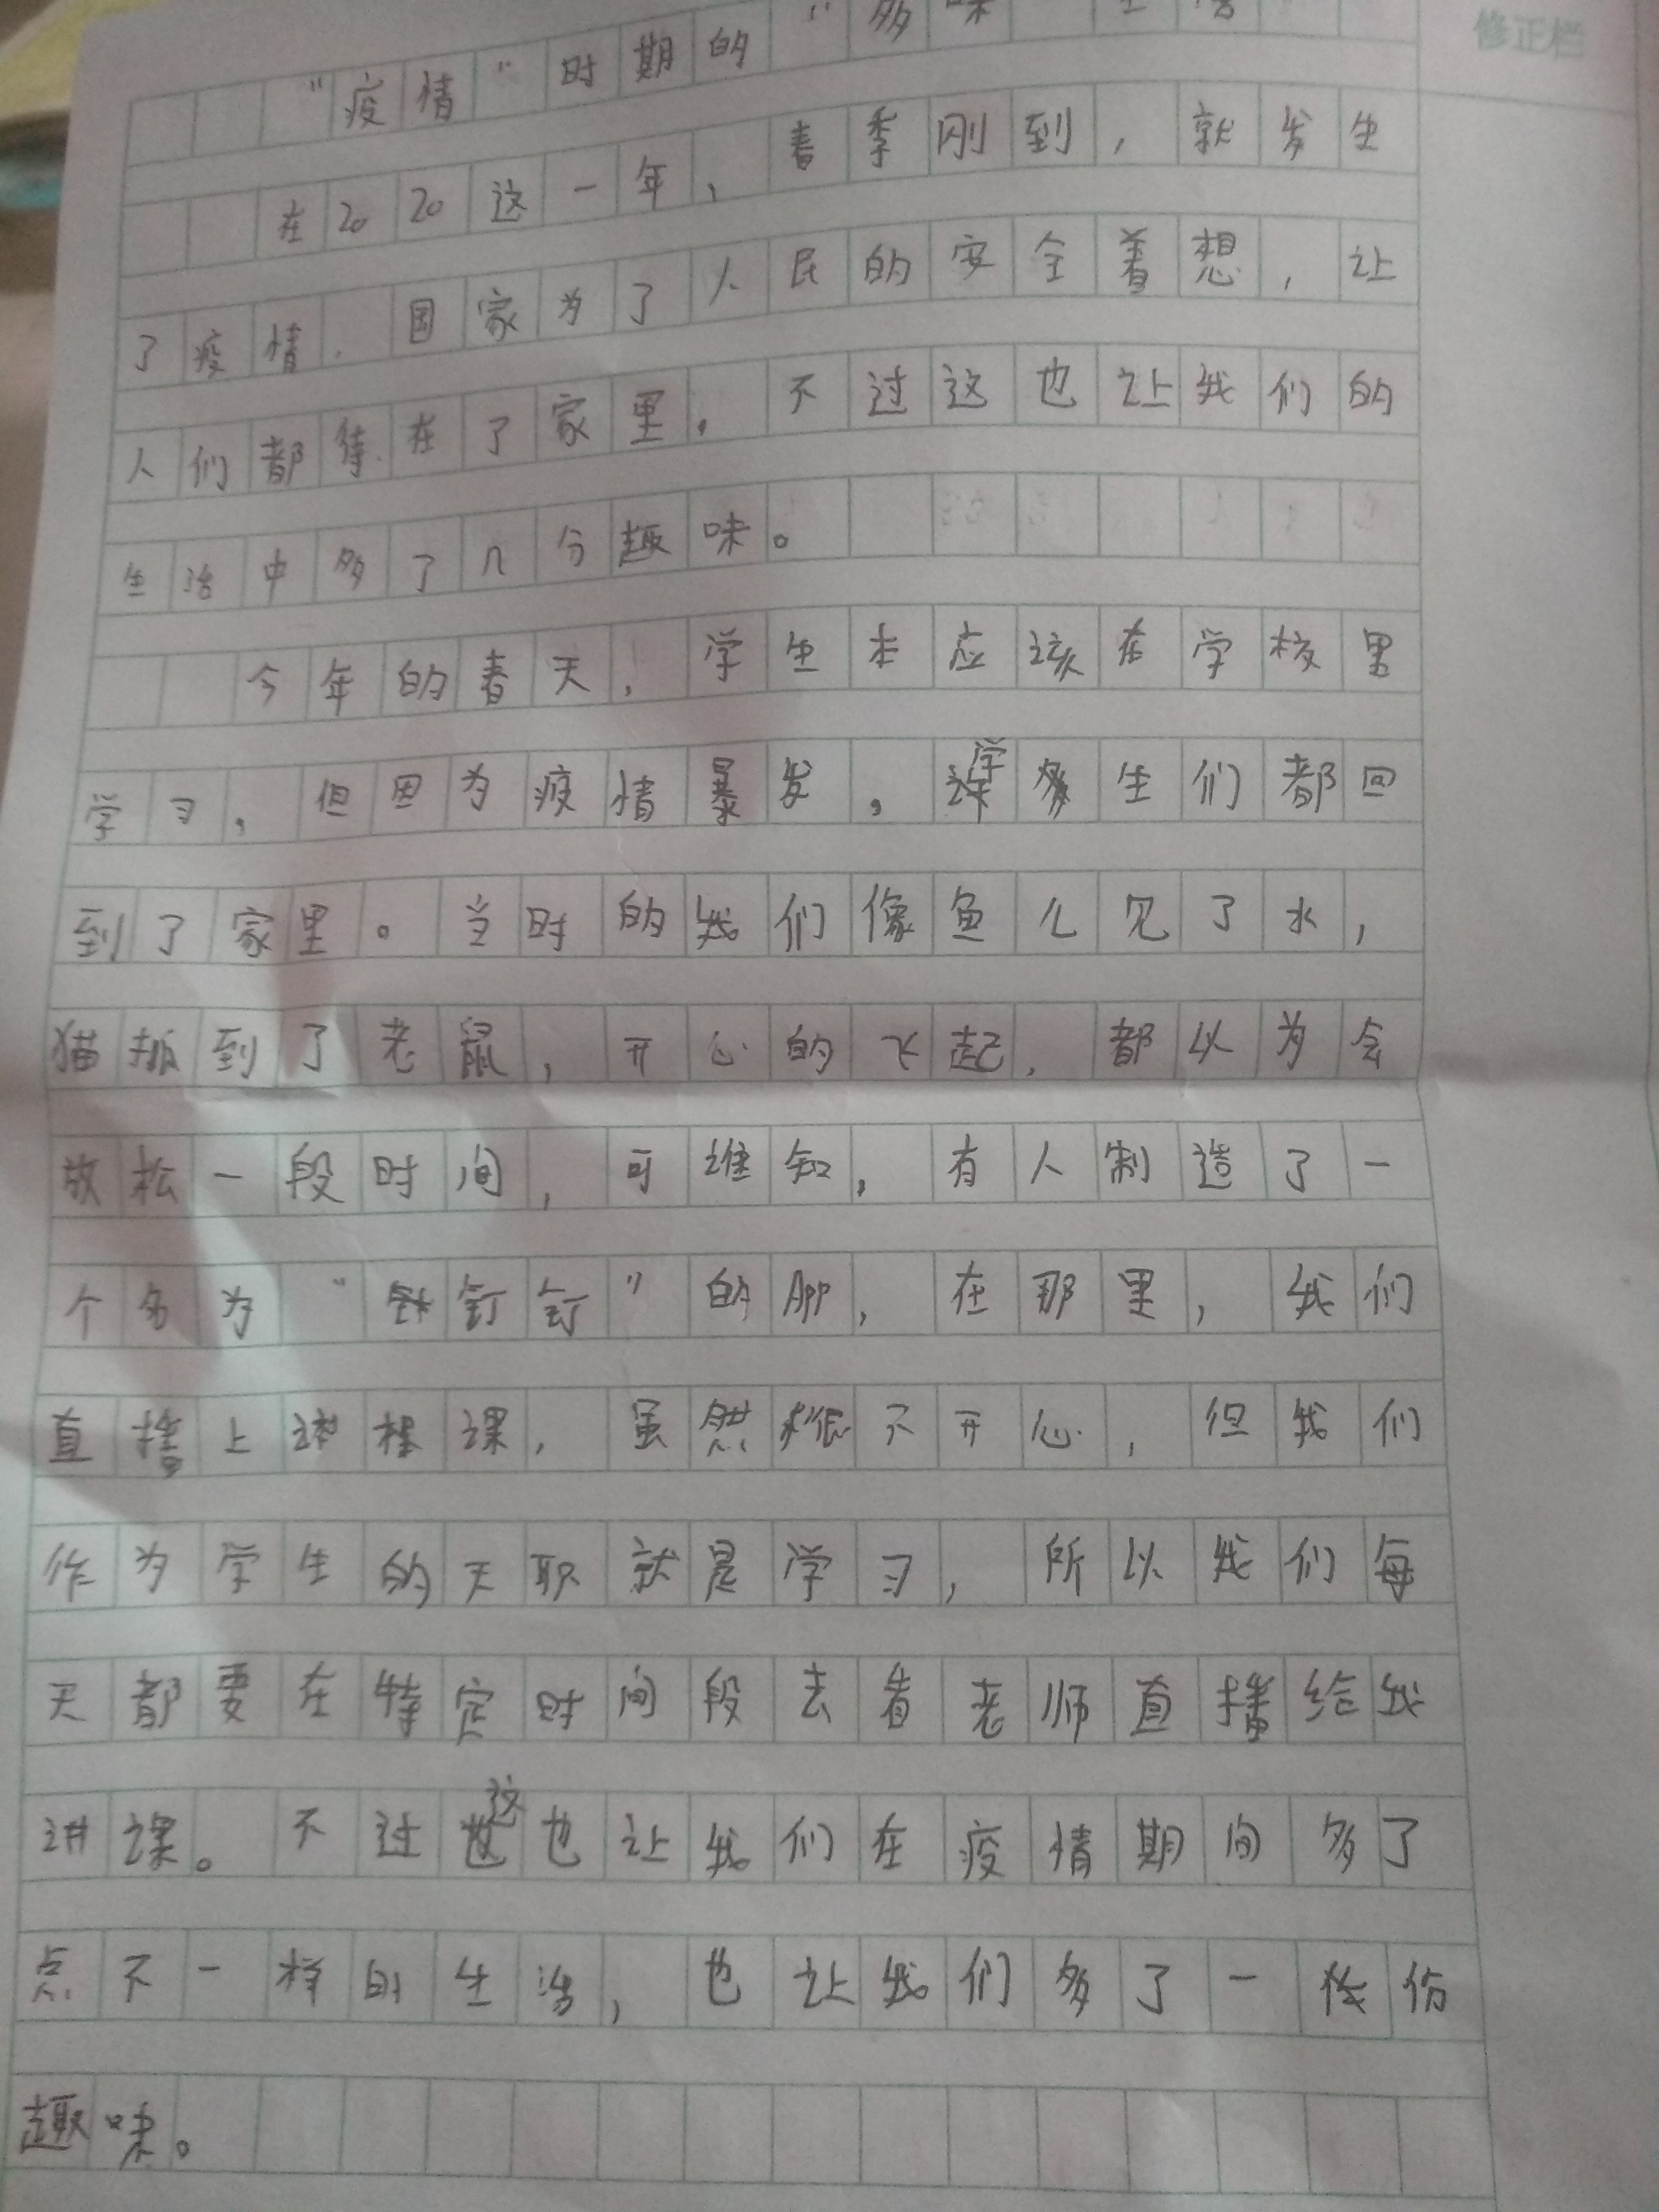 修正栏
"疫情"时期的"多味生活
在2020这一年，春季刚到，就发生
了疫情。国家为了人民的安全着想，让
人们都待在了家里。不过这也让我们的
生活中多了几分趣味。
今年的春天，学生本应该在学校里
学习，但因为疫情暴发，学生们都回
到了家里。当时的我们像鱼儿见了水，
猫抓到了老鼠，开心的飞起，都以为会
放松一段时间，可谁知，有人制造了一
个名为"钉钉"的APP，在那里，我们
直播上课，虽然很不开心，但我们
作为学生的天职就是学习，所以我们每
天都要在特定时间段去看老师直播给我
讲课。不过这也让我们在疫情期间多了
点不一样的生活，也让我们多了一份
趣味。